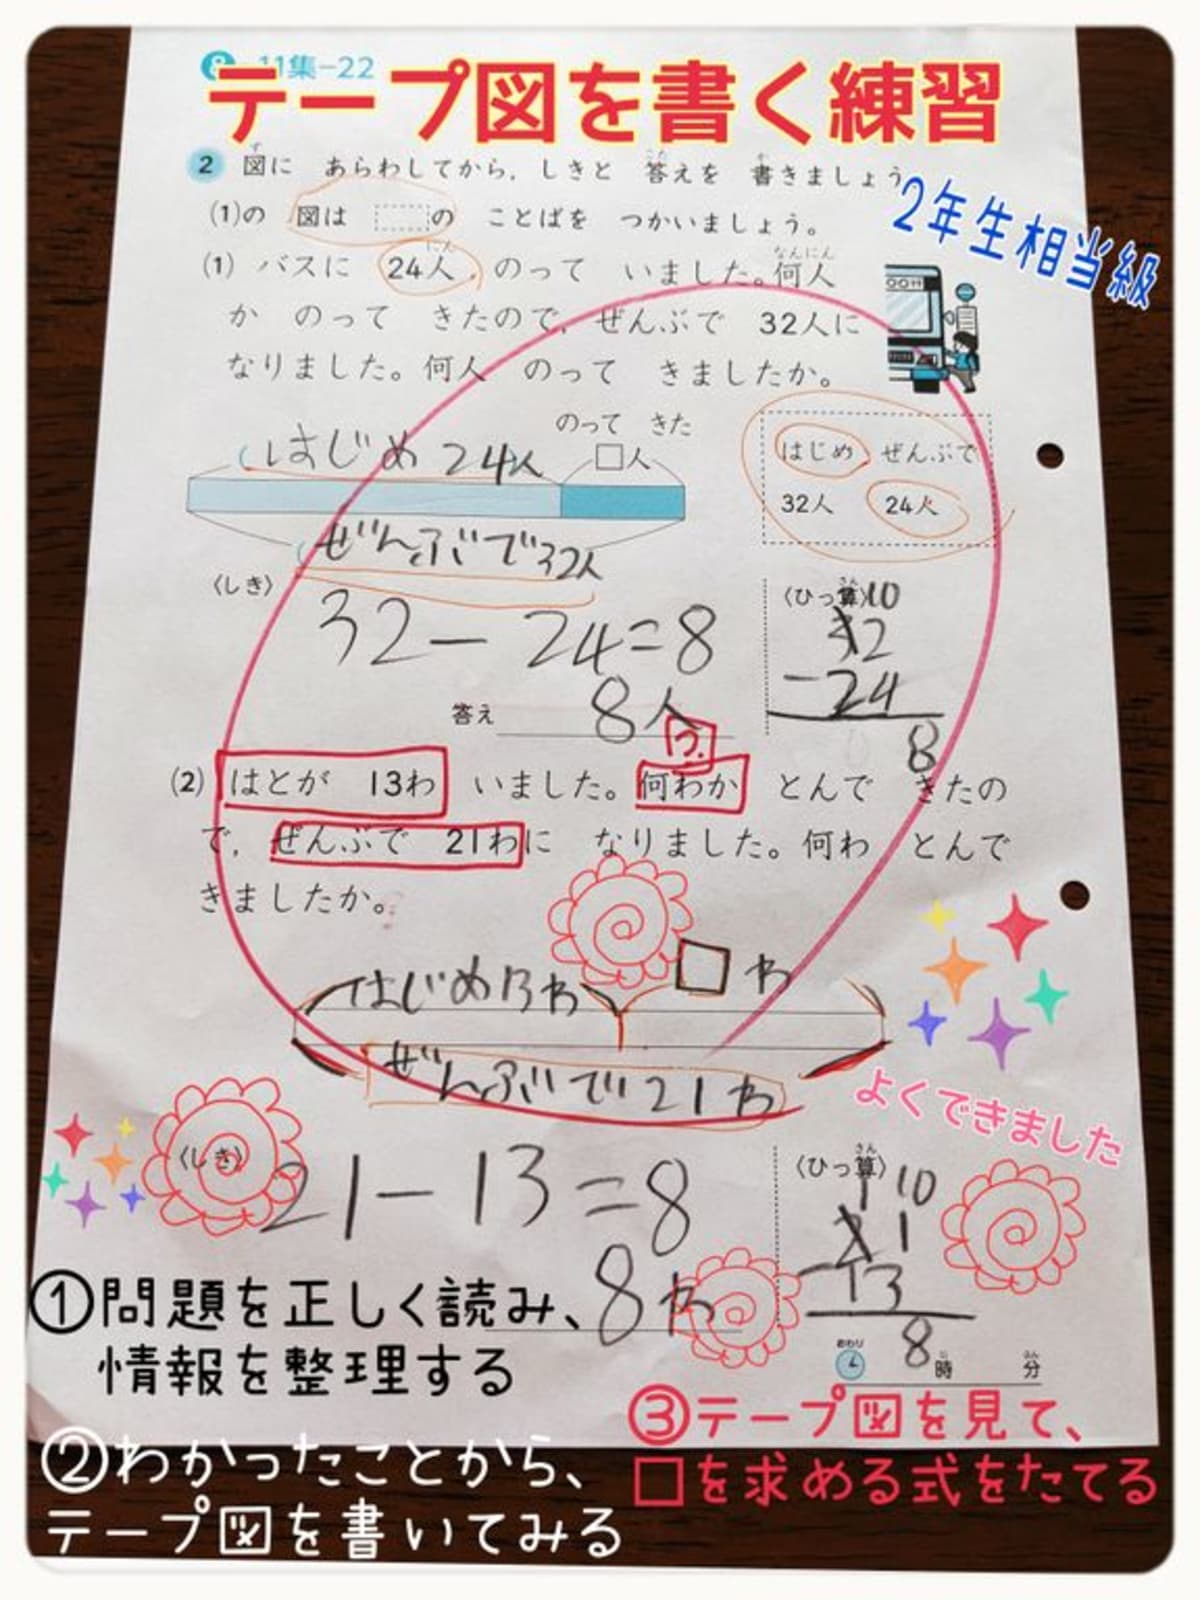 11集-22
テープ図を書く練習
2 図に あらわしてから、しきと 答えを 書きましょう
2年生相当級
(1)の 図は の ことばを つかいましょう。
(1) バスに 24人 のって いました。何人
か のって きたので、ぜんぶで 32人に
なりました。何人 のって きましたか。
のって きた
はじめ 24人 □人
はじめ ぜんぶで
32人 24人
ぜんぶで32人
〈しき〉
32-24=8
答え 8人
〈ひっ算〉10
32
-24
8
う.
(2) はとが 13わ いました。何わか とんで きたの
で、ぜんぶで 21わに なりました。何わ とんで
きましたか。
はじめ13わ □わ
ぜんぶで21わ
よくできました
〈しき〉 21-13=8
8わ
〈ひっ算〉
1 10
21
-13
8
おわり 時 分
①問題を正しく読み、
情報を整理する
②わかったことから、
テープ図を書いてみる
③テープ図を見て、
□を求める式をたてる